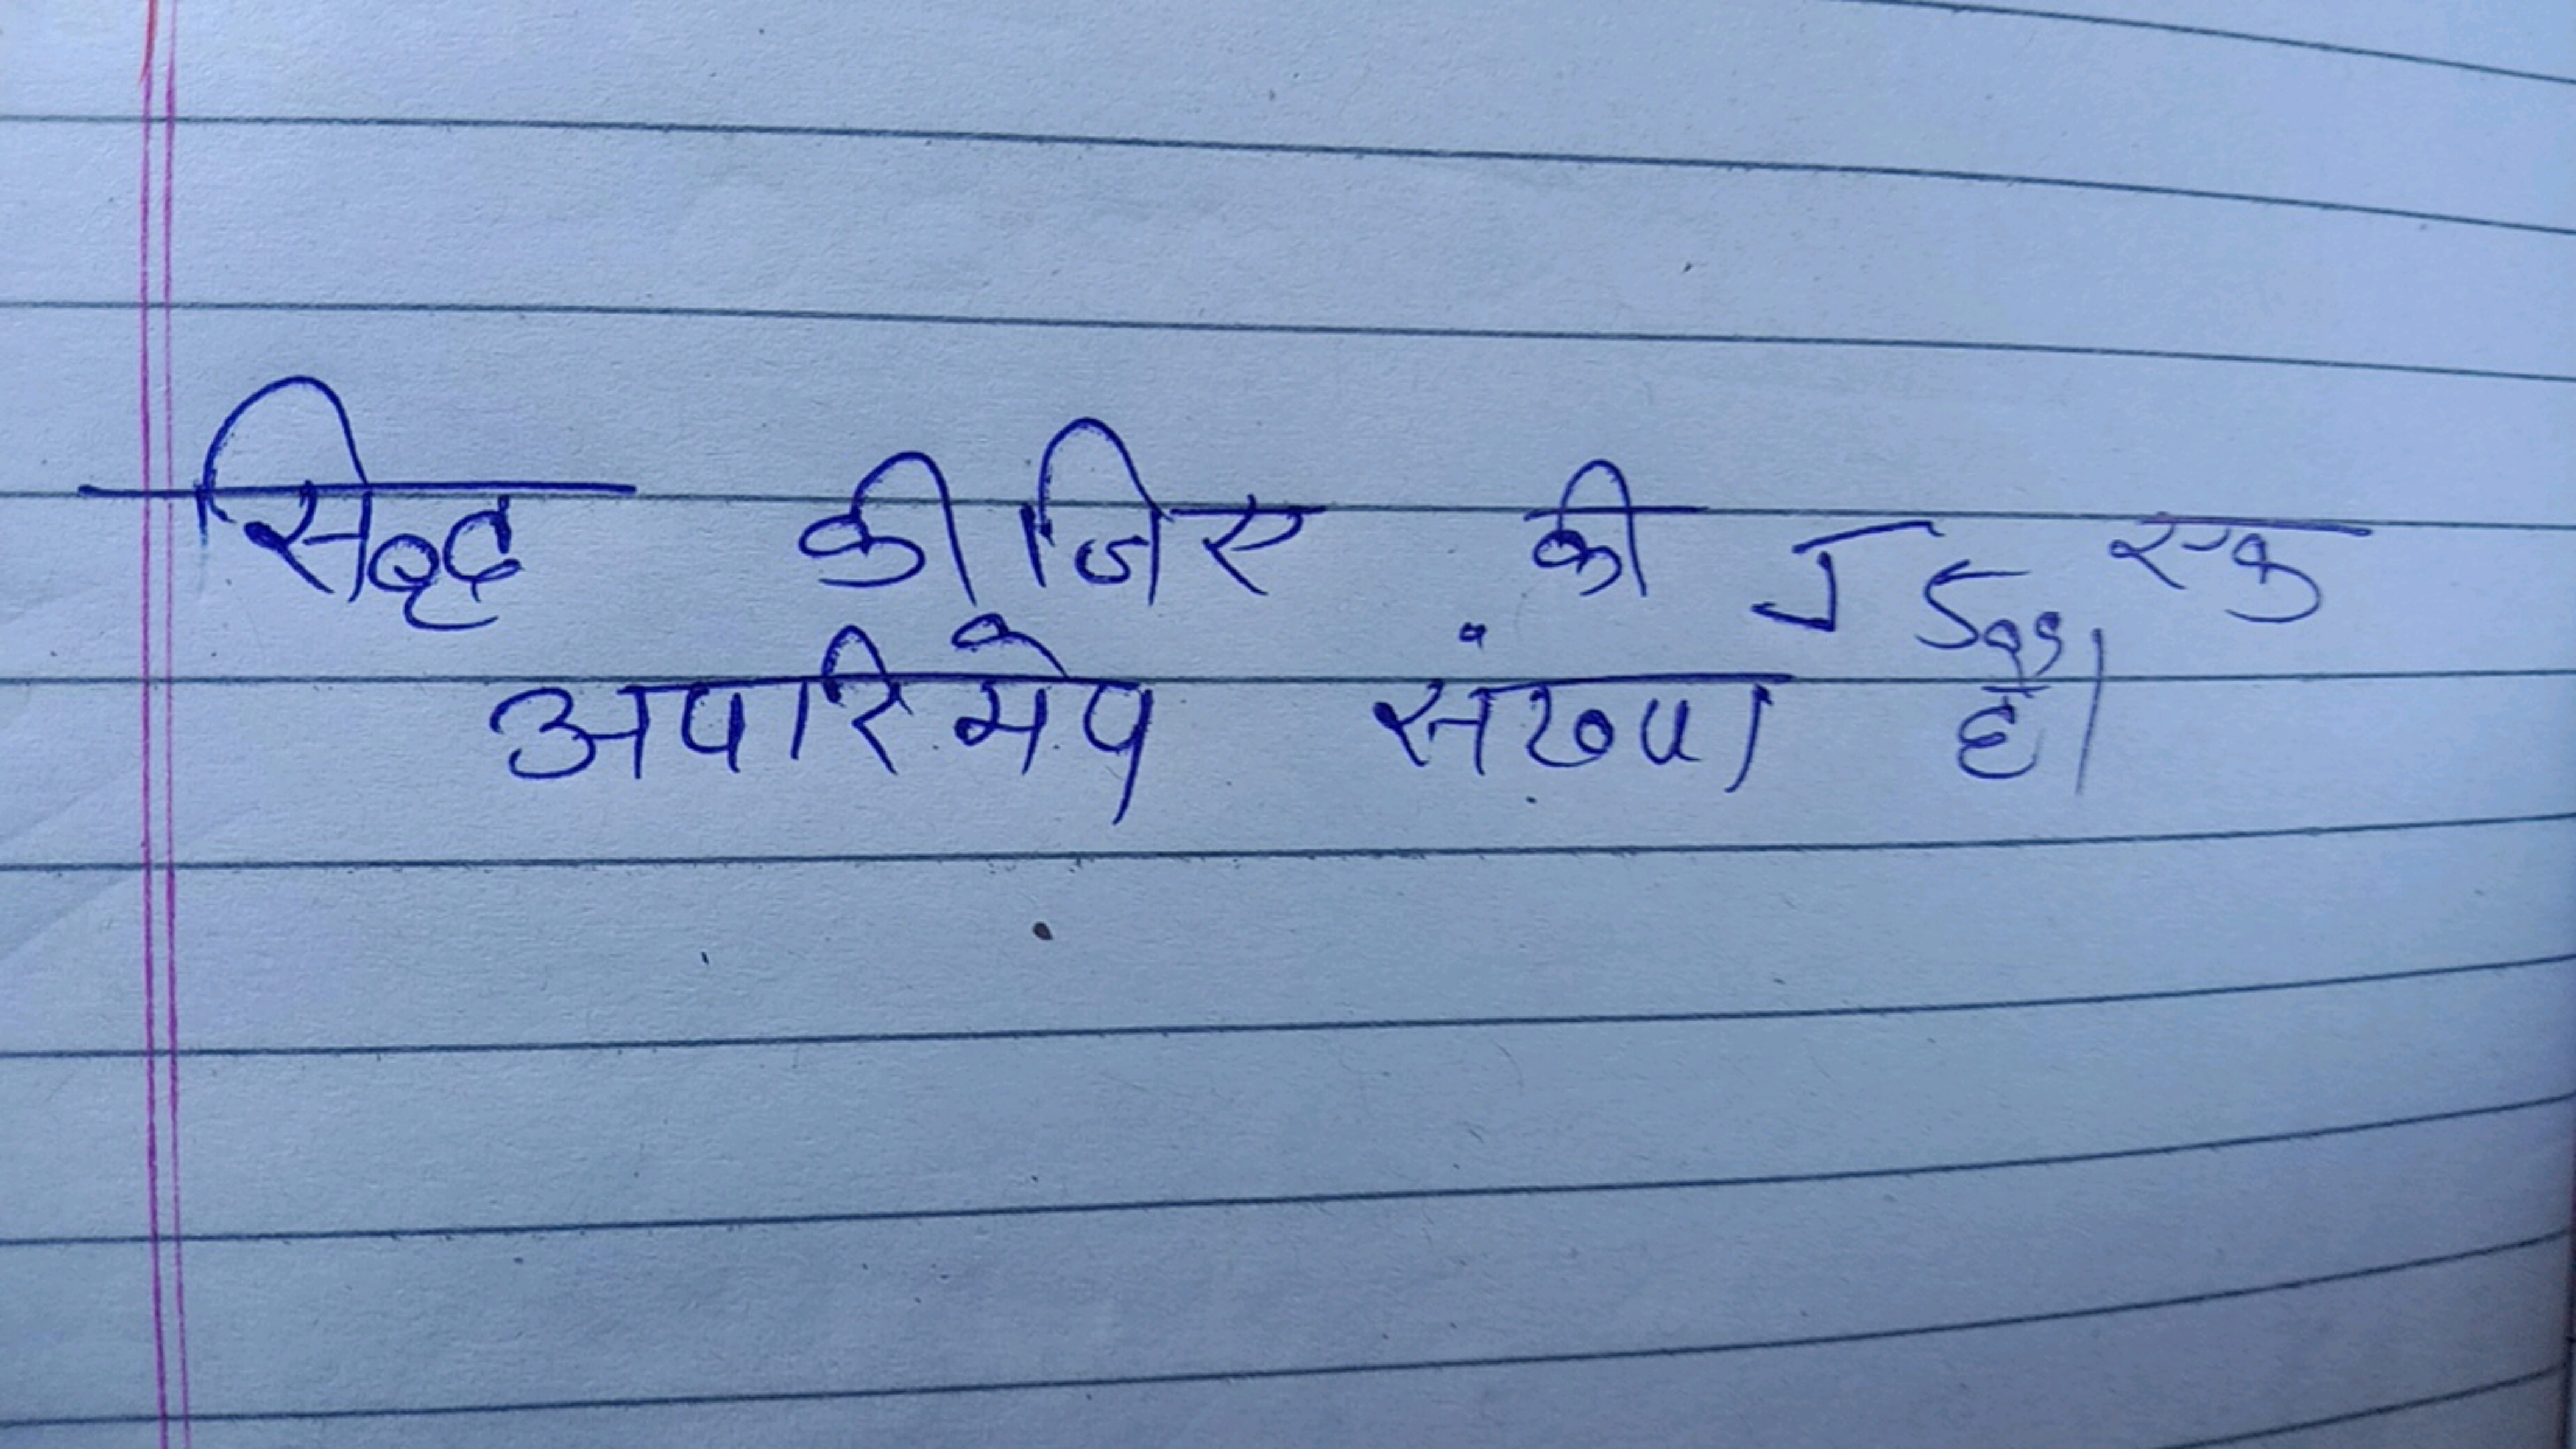 सिद्ध कीजिए की √5 एक
अपरिमेय संख्या है।